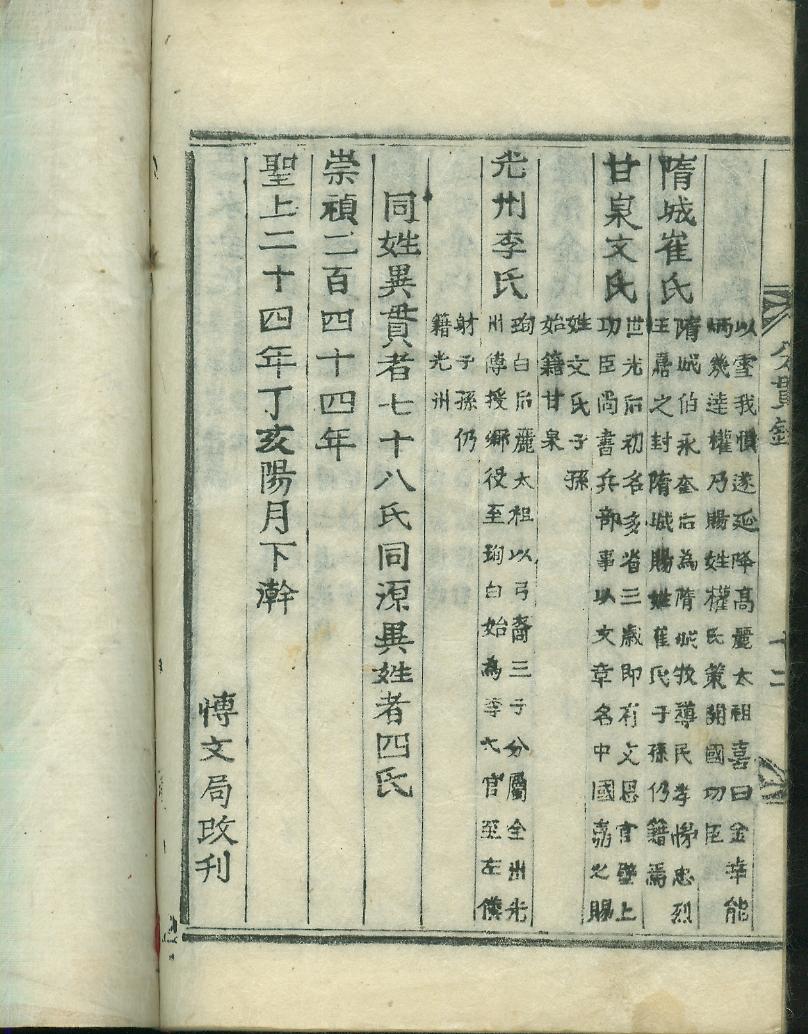 分貫錄
十二
以雪我憤遂延降高麗太祖喜曰金幸能
炳幾達權乃賜姓權氏策開國功臣
隋城崔氏
隋城伯永奎后為隋城牧導民孝悌忠烈
王嘉之封隋城賜姓崔氏子孫仍籍焉
甘泉文氏
世光后初名多省三歲即有文思官壁上
功臣尚書兵部事以文章名中國嘉之賜
姓文氏子孫
始籍甘泉
光州李氏
珣白后麗太祖以弓裔三子分屬全州光
州傳授鄉役至珣白始為李氏官至左僕
射子孫仍
籍光州
同姓異貫者七十八氏同源異姓者四氏
崇禎二百四十四年
聖上二十四年丁亥陽月下澣
博文局改刊